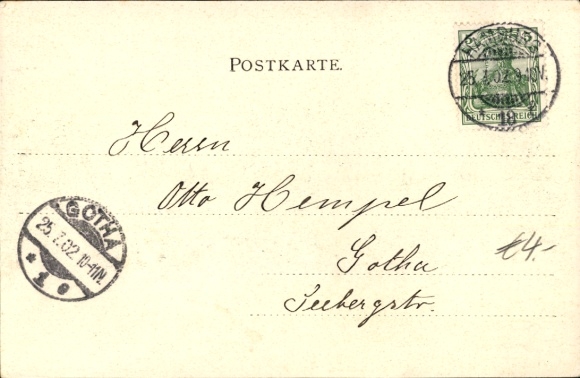 POSTKARTE.
25.7.02.9-10V.
DEUTSCHES REICH
Herrn
Otto Hempel
Gotha
Seebergstr.
GOTHA
25.7.02.10-11V.
* 1 e
€4.-